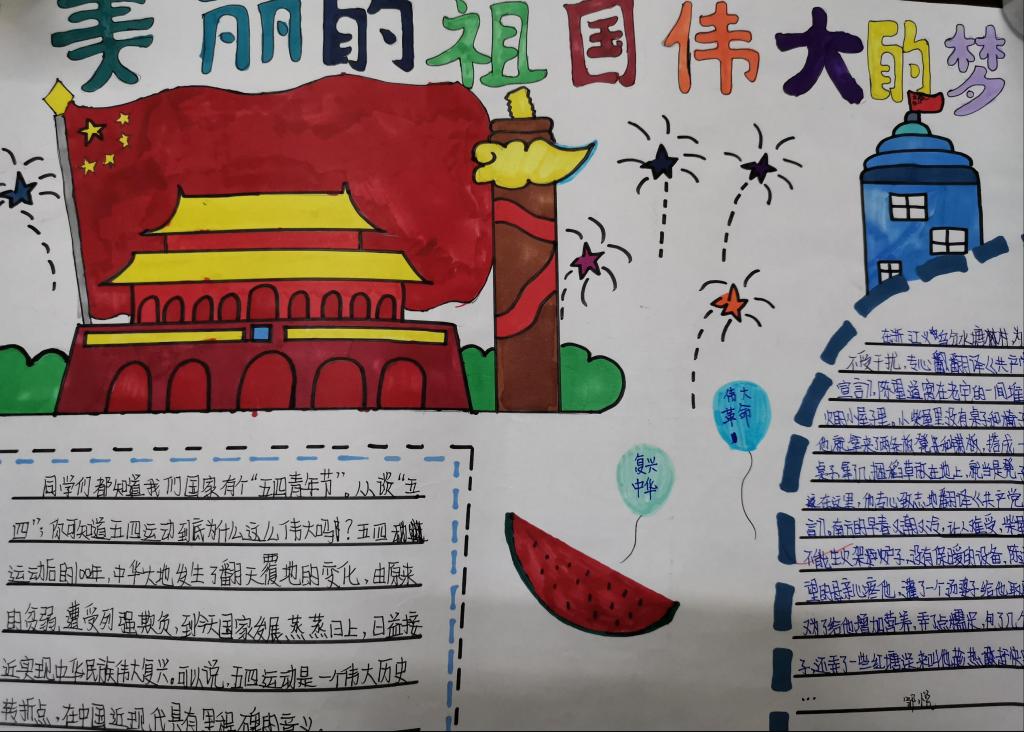 美丽的祖国伟大的梦
伟大
革命
复兴
中华
同学们都知道我们国家有个“五四青年节”。从谈“五
四”，你可知道五四运动到底为什么这么伟大吗？五四
运动后的100年，中华大地发生了翻天覆地的变化，由原来
的贫弱，遭受列强欺负，到今天国家发展蒸蒸日上，日益接
近实现中华民族伟大复兴。可以说，五四运动是一个伟大历史
转折点，在中国近现代具有里程碑的意义。
在浙江义乌分水塘村，为
不受干扰，专心翻译《共产党
宣言》，陈望道窝在老宅的一间
的小屋子里。从柴屋里没有桌子和椅子
他就拿来了两条板凳和铺板，搭成一
桌子，拿几捆稻草放在地上，就当是凳
在这里，他专心致志地翻译《共产党
言》，南方的早春又潮又冷，让人难受，柴
不能生火架炉子，没有保暖的设备，陈
望的母亲心疼他，灌了一个汤婆子给他取
为了给他增加营养，弄了点糯米，包了几个
子，还弄了一些红糖送来叫他趁热
…